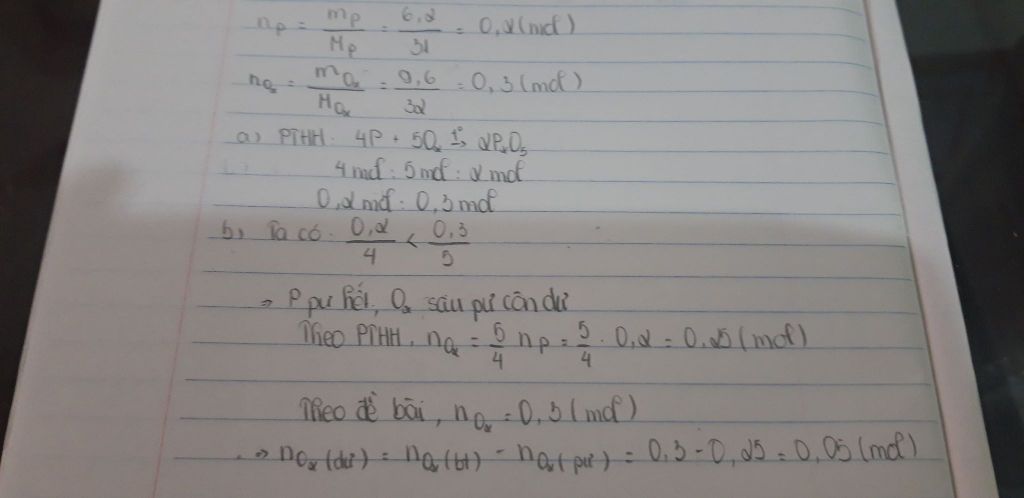 nP = mP/MP = 6,2/31 = 0,2 (mol)
nO₂ = mO₂/MO₂ = 9,6/32 = 0,3 (mol)
a) PTHH: 4P + 5O₂ t°→ 2P₂O₅
4 mol : 5 mol : 2 mol
0,2 mol : 0,3 mol
b) Ta có: 0,2/4 < 0,3/5
⇒ P pư hết, O₂ sau pư còn dư
Theo PTHH, nO₂ = 5/4 nP = 5/4 . 0,2 = 0,25 (mol)
Theo đề bài, nO₂ = 0,3 (mol)
⇒ nO₂ (dư) = nO₂ (bt) - nO₂ (pư) = 0,3 - 0,25 = 0,05 (mol)